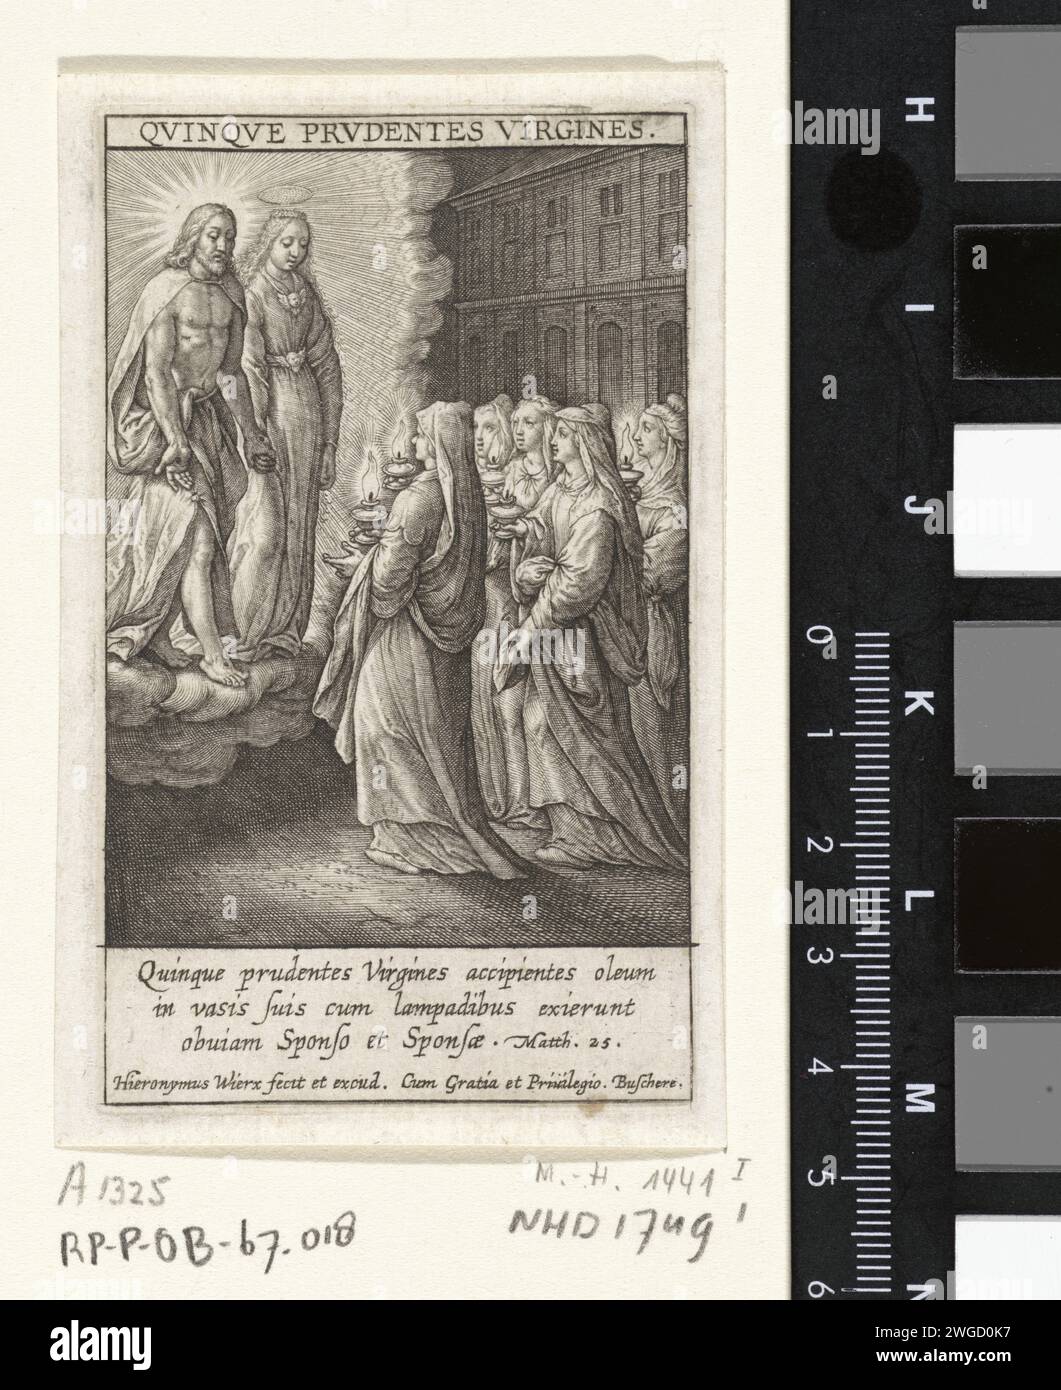 QVINQVE PRVDENTES VIRGINES.
Quinque prudentes Virgines accipientes oleum
in vasis ſuis cum lampadibus exierunt
obuiam Sponſo et Sponſæ. Matth. 25.
Hieronymus Wierx fecit et excud. Cum Gratia et Priuilegio. Buſchere.
A 1325
RP-P-OB-67.018
M.-H. 1441 I
NHD 1749 I
H
I
J
K
L
M
N
0
1
2
3
4
5
6
alamy
Image ID: 2WGD0K7
www.alamy.com